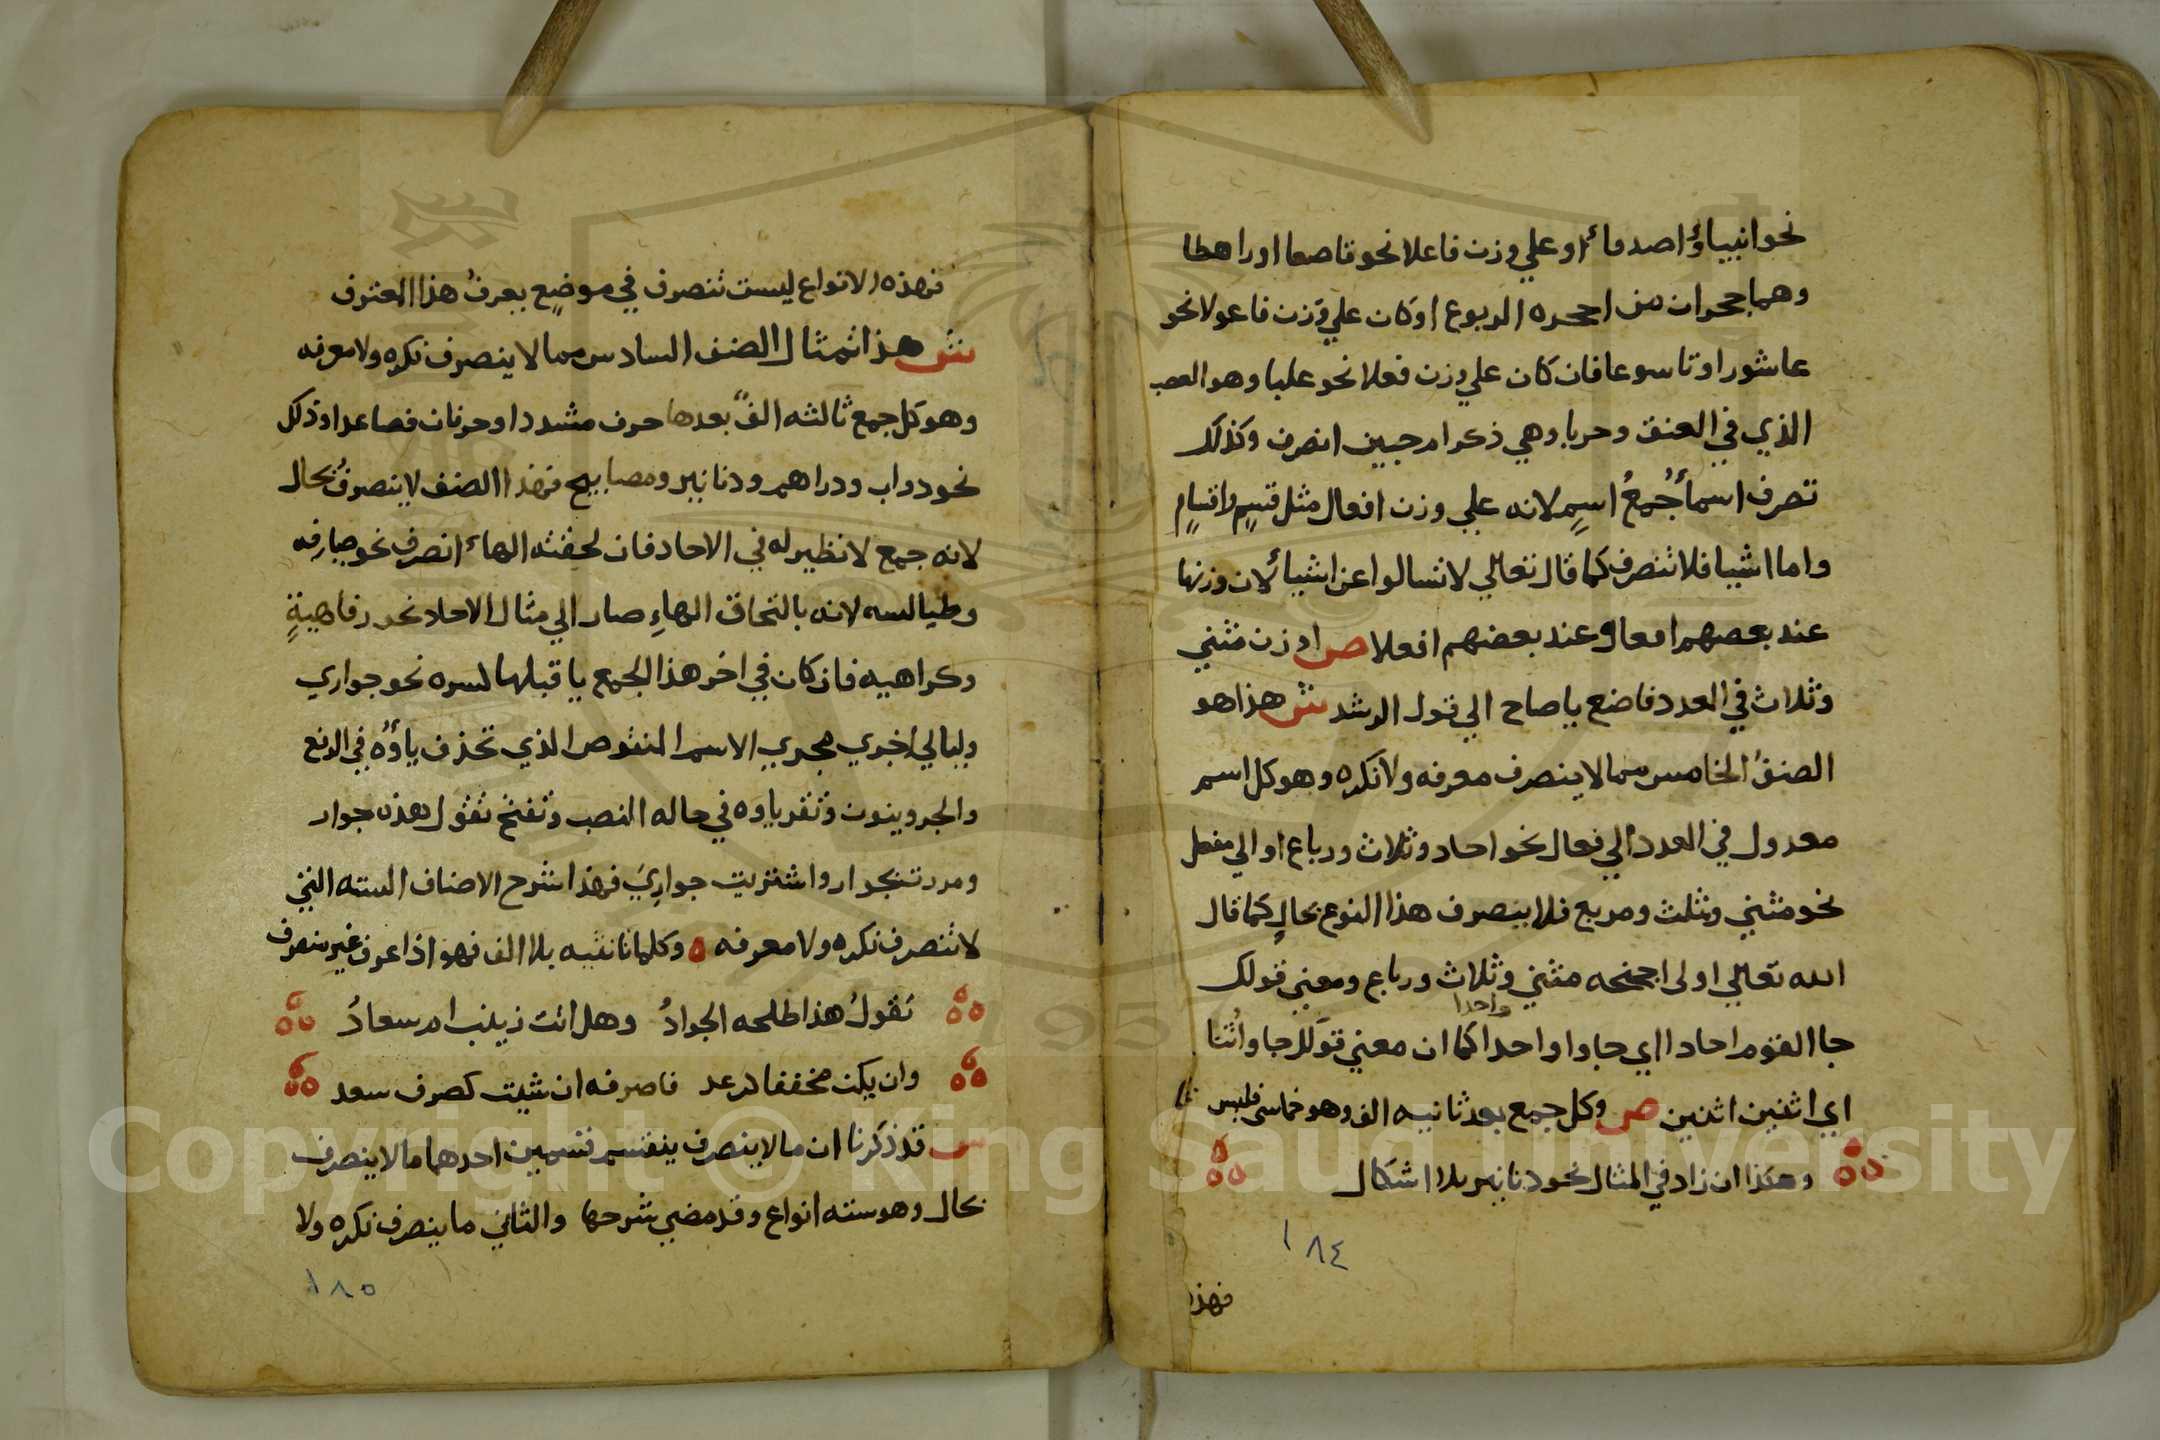 نحو انبياؤ اصدقائ او علي وزن فاعلا نحو قاصعا او راهطا
وهما جحران من اجحره اليربوع او كان علي وزن فاعولا نحو
عاشورا وتاسوعا فان كان علي وزن فعلا نحو علبا وهو العصب
الذي في العنق وحربا وهي ذكر ام حبين انصرف وكذلك
تصرف اسمأ جمعُ اسمٍ لانه علي وزن افعال مثل قسمٍ واقسامٍ
واما اشيا فلا تنصرف كما قال تعالي لا تسالوا عن اشيأ لان وزنها
عند بعضهم افعا وعند بعضهم افعلا ص او زن مثني
وثلاث في العدد فاضع يا صاح الي قول الرشد ش هذا هو
الصنف الخامس مما لا ينصرف معرفه ولا نكره وهو كل اسم
معدول في العدد الي فعال نحو احاد وثلاث ورباع او الي مفعل
نحو مثني ومثلث ومربع فلا ينصرف هذا النوع بحالٍ كما قال
الله تعالي اولى اجنحه مثني وثلاث ورباع ومعني قولك
جا القوم احادا اي جاوا واحدا واحدا كما ان معني قولك جاوا ثنا
اي اثنين اثنين ص وكل جمع بعد ثانيه الف وهو خماسي فليس
وهكذا ان زاد في المثال نحو دنانير بلا اشكال
١٨٤
فهذه
فهذه الانواع ليست تنصرف في موضع يعرفُ هذا المعترف
ش هذا تمثال الصنف السادس مما لا ينصرف نكره ولا معرفه
وهو كل جمع ثالثه الفٌ بعدها حرف مشدد او حرفان فصاعدا وذلك
نحو دواب ودراهم ودنانير ومصابيح فهذا الصنف لا ينصرف بحال
لانه جمع لا نظير له في الاحاد فان لحقته الهاء انصرف نحو صيارفه
وطيالسه لانه بالتحاق الهاءِ صار الي مثال الاحاد نحو رفاهيةٍ
وكراهيه فان كان في اخر هذا الجمع يا قبلها كسره نحو جواري
وليالي اجري مجري الاسم المنقوص الذي تحذف ياؤه في الرفع
والجر وينون وتقر ياوه في حاله النصب وتفتح تقول هذه جوار
ومررت بجوار واشتريت جواريَ فهذا شرح الاصناف السته التي
لا تنصرف نكره ولا معرفه ه وكلما تانيثه بلا الف فهو اذا عرف غير منصرف
تقولُ هذا طلحه الجوادُ وهل اتت زينب ام سعادُ
وان يكن مخففا كدعد فاصرفه ان شيت كصرف سعد
ش قد ذكرنا ان ما لا ينصرف ينقسم قسمين احدهما ما لا ينصرف
بحال وهو سته انواع وقد مضي شرحها والثاني ما ينصرف نكره ولا
١٨٥
Copyright © King Saud University